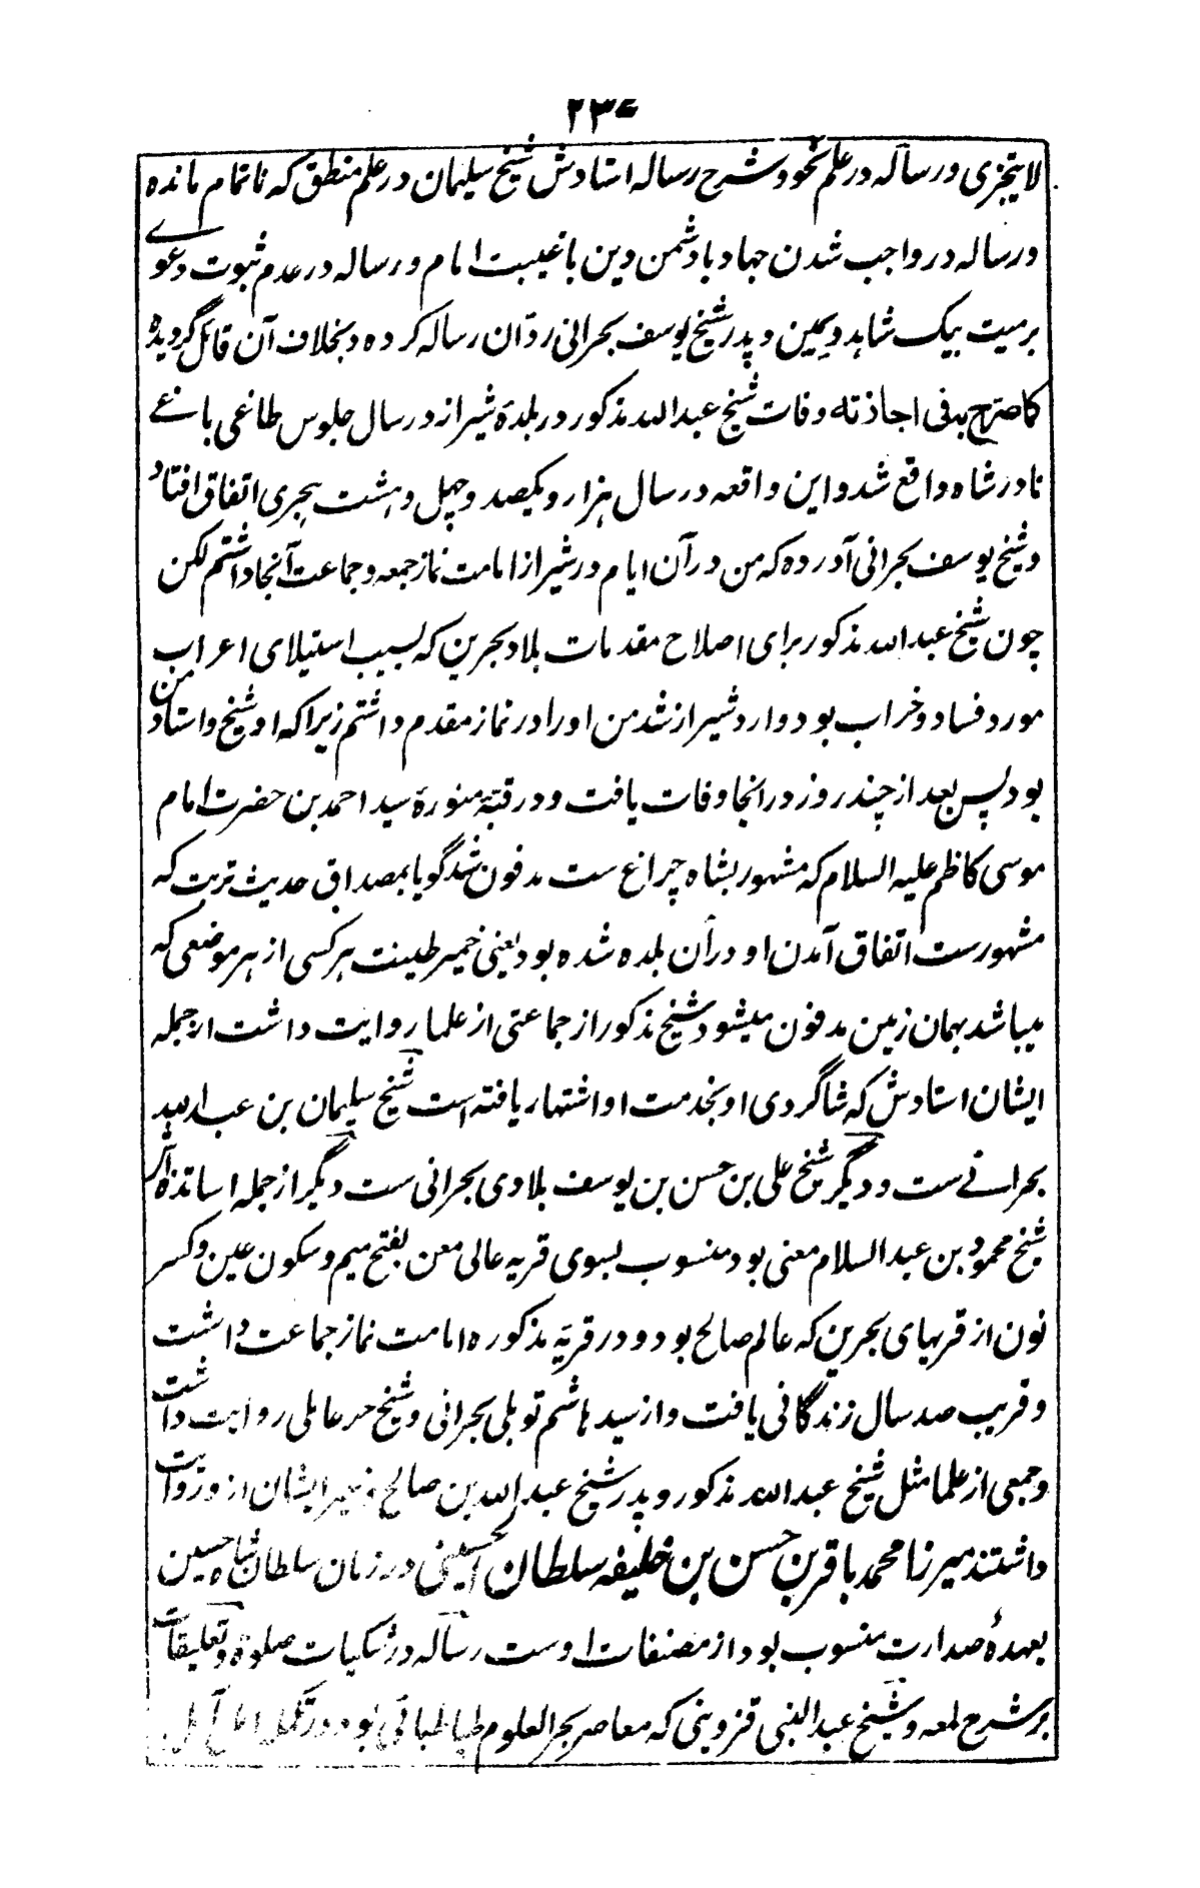 ۲۳۶
لایتجزی و رساله در علم نحو و شرح رساله استادش شیخ سلیمان در علم منطق که ناتمام مانده
و رساله در واجب شدن جهاد با دشمن دین با غیبت امام و رساله در عدم ثبوت دعوے
بر میت بیک شاهد و یمین و پدر شیخ یوسف بحرانی رد آن رساله کرده و بخلاف آن قائل گردیده
کما صرح به فی اجازته وفات شیخ عبدالله مذکور در بلدۀ شیراز در سال جلوس طاغی باغے
نادر شاه واقع شد و این واقعه در سال هزار و یکصد و چهل و هشت هجری اتفاق افتاد
و شیخ یوسف بحرانی آورده که من در آن ایام در شیراز امامت نماز جمعه و جماعت آنجا داشتم لکن
چون شیخ عبدالله مذکور برای اصلاح مقدمات بلاد بحرین که بسبب استیلای اعراب
مورد فساد و خراب بود وارد شیراز شد من او را در نماز مقدم داشتم زیرا که او شیخ و استاد من
بود پس بعد از چند روز در آنجا وفات یافت و در قبۀ منورۀ سید احمد بن حضرت امام
موسی کاظم علیه السلام که مشهور بشاه چراغ ست مدفون شد گویا بمصداق حدیث تربت که
مشهورست اتفاق آمدن او در آن بلده شده بود یعنی خمیر طینت هر کسی از هر موضعی که
میباشد بهمان زمین مدفون میشود شیخ مذکور از جماعتی از علما روایت داشت از جمله
ایشان استادش که شاگردی او بخدمت او اشتهار یافته است شیخ سلیمان بن عبدالله
بحرانے ست و دیگر شیخ علی بن حسن بن یوسف بلادی بحرانی ست دیگر از جمله اساتذۀ آن
شیخ محمود بن عبدالسلام معنی بود منسوب بسوی قریه عالی معن بفتح میم و سکون عین و کسر
نون از قریهای بحرین که عالم صالح بود و در قریۀ مذکوره امامت نماز جماعت داشت
و قریب صد سال زندگانی یافت و از سید هاشم توبلی بحرانی و شیخ حر عاملی روایت داشت
و جمعی از علما مثل شیخ عبدالله مذکور و پدر شیخ عبدالله بن صالح و غیر ایشان از و روایت
داشتند میرزا محمد باقر بن حسن بن خلیفه سلطان الحسینی در زمان سلطان شاه حسین
بعهدۀ صدارت منسوب بود از مصنفات اوست رساله در شکیات صلوة و تعلیقات
بر شرح لمعه و شیخ عبدالنبی قزوینی که معاصر بحرالعلوم طباطبائی بود در تکمله